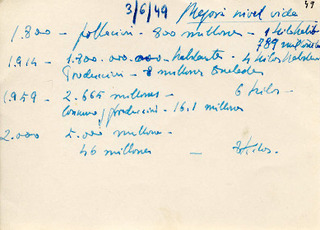 3/6/49 Mejora nivel vida 49
1.800 - población - 800 millones - 1 kilo habit
789 millones
1.914 - 1.800.000.000 habitantes - 4 kilos habitan
Producción - 8 millones toneladas
1959 - 2.665 millones - 6 kilos -
Consumo y producción - 16.1 millones
2.000 5.000 millones -
46 millones - kilos.